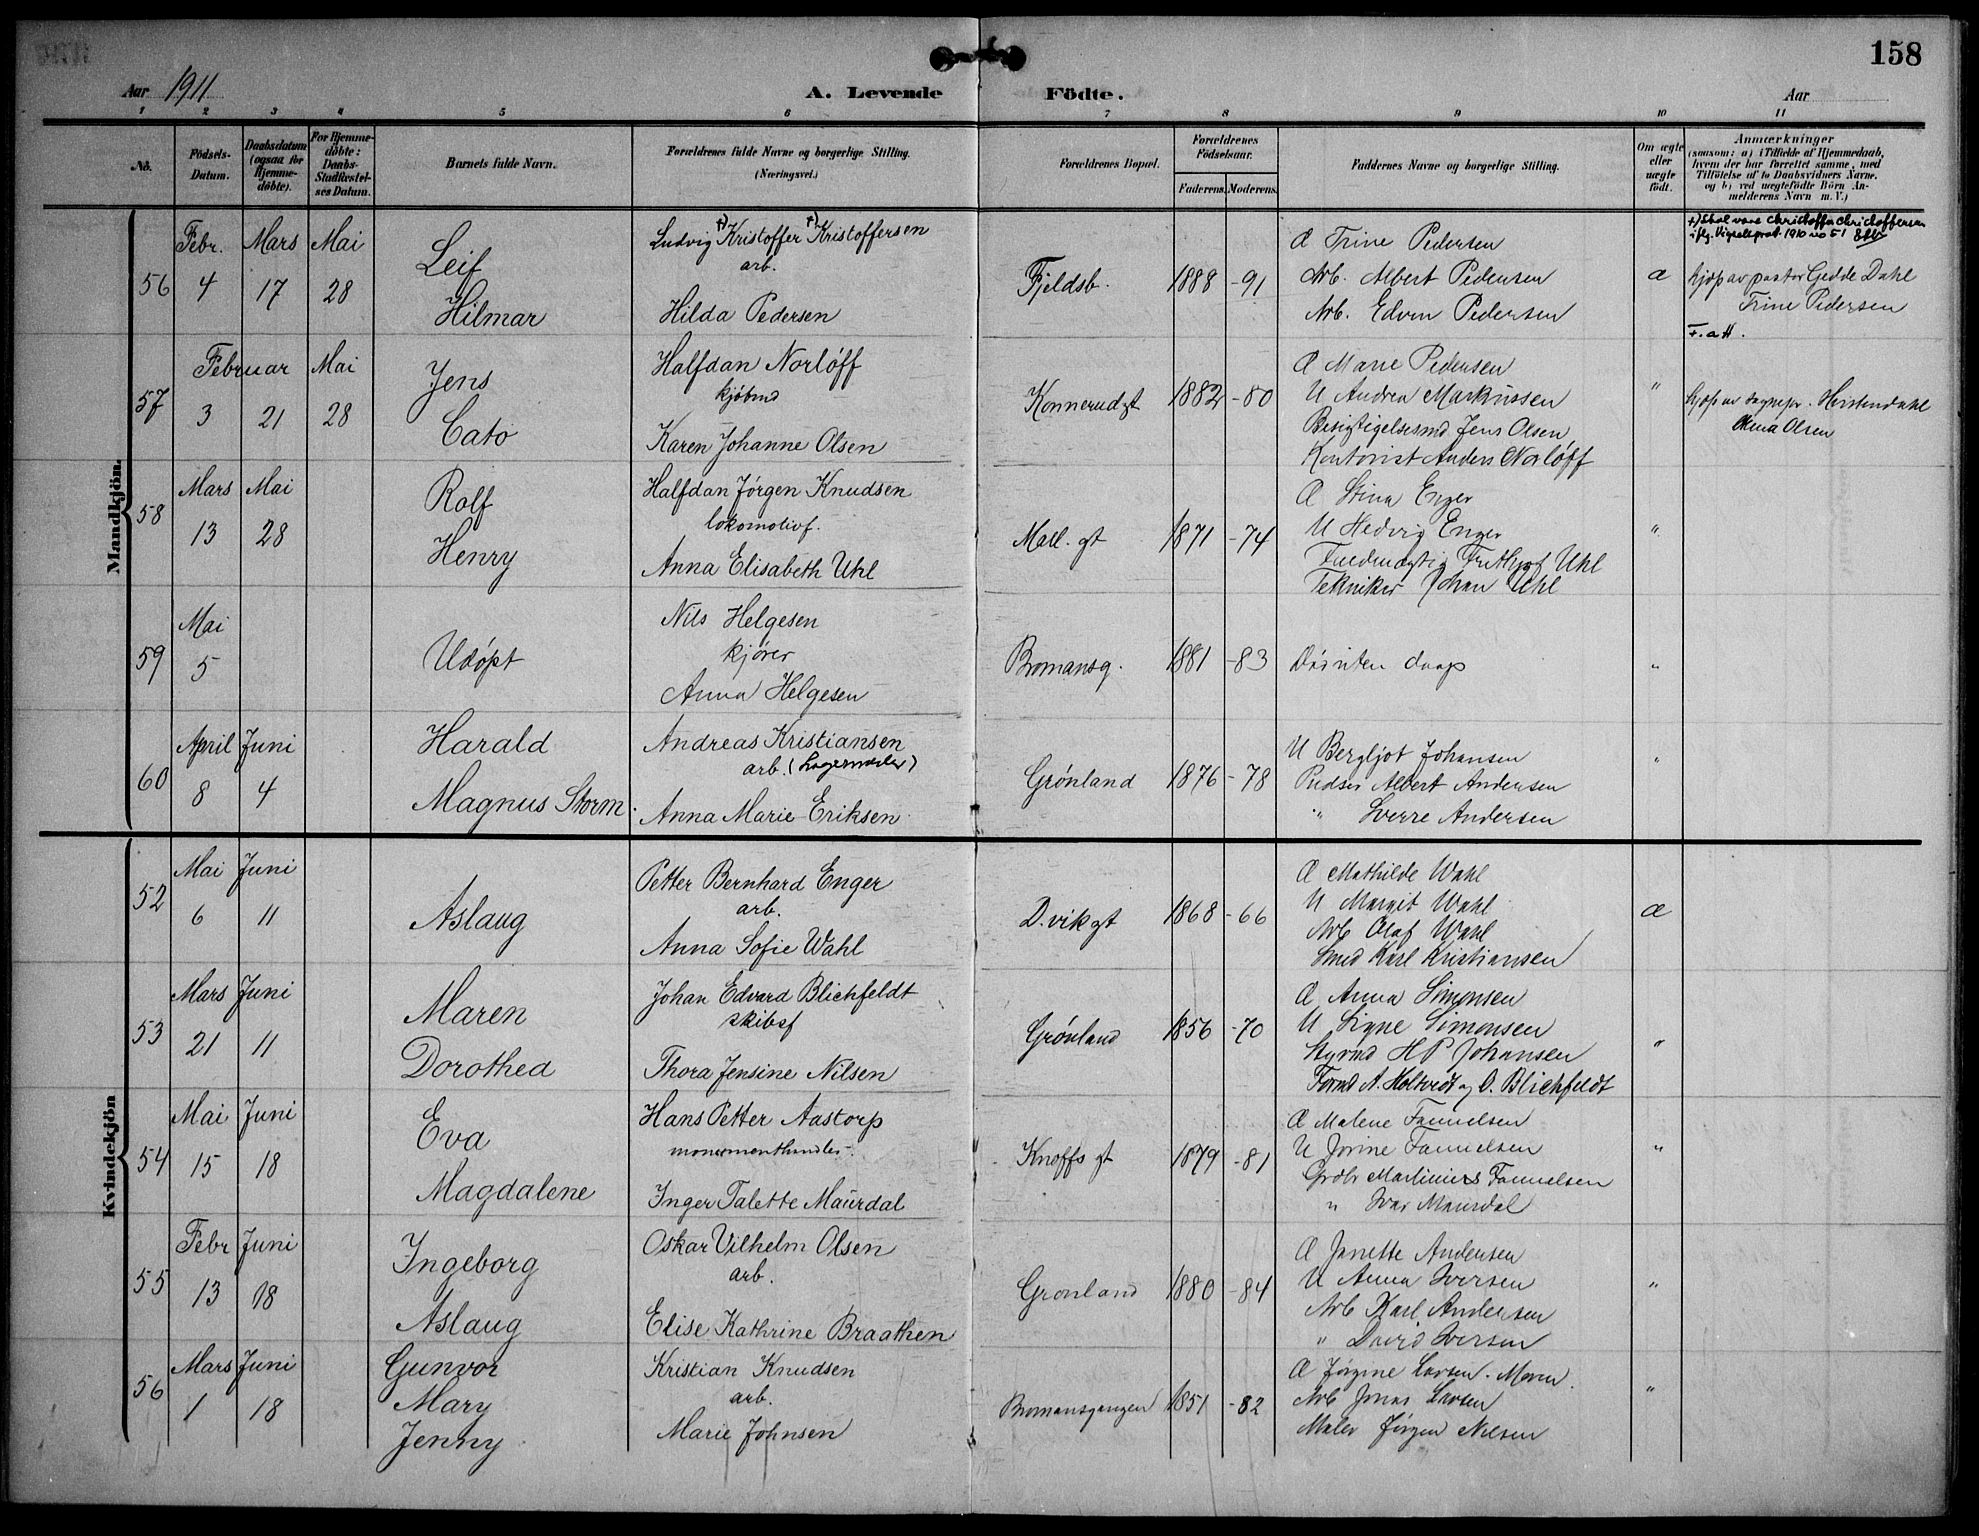 158
Aar 1911 A. Levende Födte. Aar
1 2 3 4 5 6 7 8 9 10 11
No. Födsels-Datum. Daabsdatum (ogsaa for Hjemme-döbte). For Hjemme-döbte: Daabs-Stadfæstel-ses Datum. Barnets fulde Navn. Forældrenes fulde Navne og borgerlige Stilling. (Næringsvei.) Forældrenes Bopæl. Forældrenes Födselsaar. Faderens. Moderens. Faddernes Navne og borgerlige Stilling. Om ægte eller uægte födt. Anmærkninger
(saasom: a) i Tilfælde af Hjemmedaab,
hvem der har forrettet samme, med
Tilföielse af to Daabsvidners Navne.
og b) ved uægtefödte Börn An-
melderens Navn m. V.)
Mandkjön.
56 Febr. 4 Mars 17 Mai 28
Leif
Hilmar
Ludvig +) Kristoffer +) Kristoffersen
arb.
Hilda Pedersen
Fjeldsb. 1888 -91
Æ Trine Pedersen
Arb. Albert Pedersen
Arb. Edvin Pedersen
æ
+) Skal være Christoffer Christoffersen
iflg. Vigselsprot. 1910 no 51
hjdp av pastor Gedde Dahl
Trine Pedersen
F. a H.
57 Februar 3 21 Mai 28
Jens
Cato
Halfdan Norløff
kjöbmd
Karen Johanne Olsen
Konnerudgt 1882 -80
Æ Marie Pedersen
U Andrea Markussen
Besigtigelsesmd Jens Olsen
Kontorist Anders Norløff
"
hjdp av sognepr. Hirstendahl
Olena Olsen
58 Mars 13 Mai 28
Rolf
Henry
Halfdan Jørgen Knudsen
lokomotivf.
Anna Elisabeth Uhl
Møll. gt 1871 -74
Æ Stina Enger
U Hedvig Enger
Fuldmægtig Fritjof Uhl
Tekniker Johan Uhl
"
59 Mai 5
Udöpt
Nils Helgesen
kjører
Anna Helgesen
Bromansg. 1881 -83
Død uten daap
"
60 April 8 Juni 4
Harald
Magnus Storm.
Andreas Kristiansen
arb. (Lagermøler)
Anna Marie Eriksen
Grønland 1876 -78
U Bergljot Johansen
Pudser Albert Andersen
" Sverre Andersen
"
Kvindekjön
52 Mai 6 Juni 11
Aslaug
Petter Bernhard Enger
arb.
Anna Sofie Wahl
D.vikgt 1868 -66
Æ Mathilde Wahl
U Margit Wahl
Arb Olaf Wahl
Smed Karl Kristiansen
æ
53 Mars 21 Juni 11
Maren
Dorothea
Johan Edvard Blichfeldt
skibsf
Thora Jensine Nilsen
Grønland 1856 -70
Æ Anna Simonsen
U Signe Simonsen
Styrmd H P Johansen
Formd A. Holtvedt og O. Blichfeldt
"
54 Mai 15 Juni 18
Eva
Magdalene
Hans Petter Aastorp
monumenthandler.
Inger Talette Maurdal
Knoffs gt 1879 -81
Æ Malene Fannelsen
U Jorine Fannelsen
Grdbr Martinius Fannelsen
" Ivar Maurdal
"
55 Febr 13 Juni 18
Ingeborg
Aslaug
Oskar Vilhelm Olsen
arb.
Elise Kathrine Braathen
Gronland 1880 -84
Æ Janette Andersen
U Anna Iversen
Arb Karl Andersen
" David Iversen
"
56 Mars 1 Juni 18
Gunvor
Mary
Jenny
Kristian Knudsen
arb.
Marie Johnsen
Bromansgangen 1851 -82
Æ Jørgine Larsen. Moren.
Arb Jonas Larsen
Maler Jørgen Nilsen
"